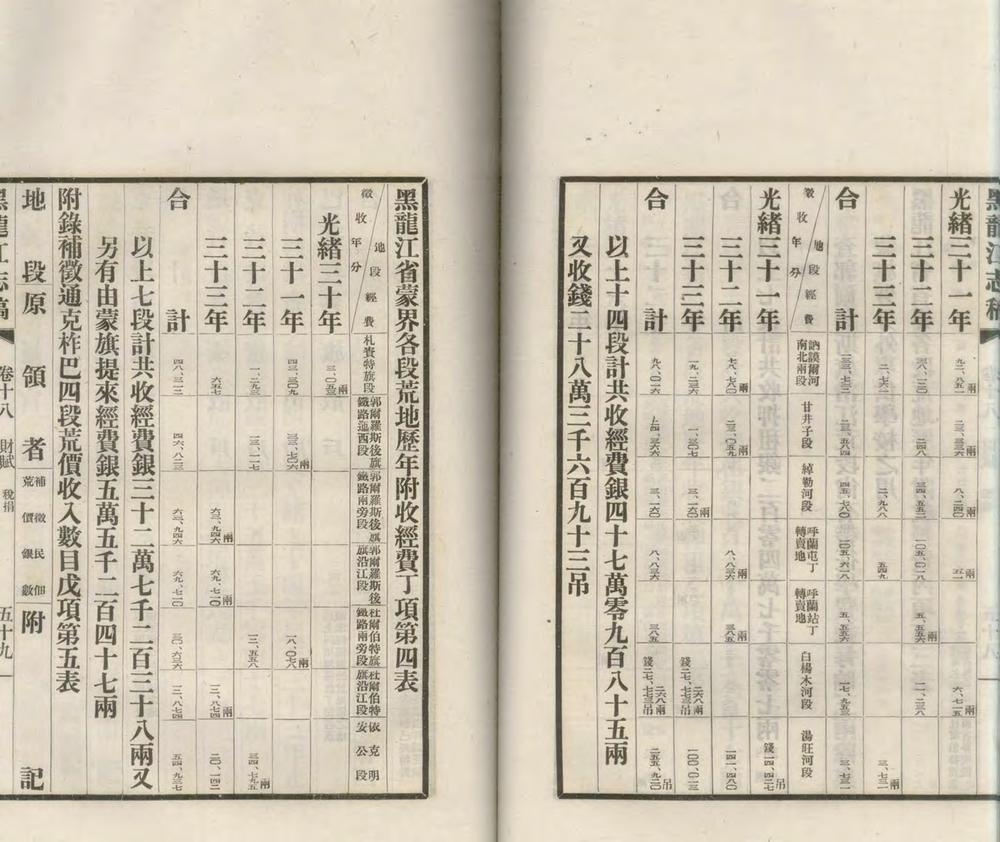 黑龍江志稿
光緒三十一年 九二、八五二兩 二三、三三六兩 八、二四〇兩 五二兩 六、七一五兩
三十二年 三八、一三〇 二四八 三四、五五二 一〇五、〇一八 五、五五六兩 一一、二三八
三十三年 二、七六二 二、九八八 五四九 三、七三二兩
合計 二三、五八四 四五、七六〇 一〇五、六一八 五、五五六 一七、九五三 三、七三二
徵收年分 地段經費 訥謨爾河南北兩段 甘井子段 綽勒河段 呼蘭屯丁轉賣地 呼蘭站丁轉賣地 白楊木河段 湯旺河段
光緒三十一年 錢一四、四二七吊
三十二年 七八、七八〇兩 二三、〇五九兩 八、八三六兩 三八五兩 一四一、四八〇
三十三年 一九、二三六 一、三〇七 三、一六〇兩 二六八兩 錢二七、七三三吊 一〇〇、〇一三
合計 九八、〇一六 二四、三六六 三、一六〇 八、八三六 三八五 二六八兩 錢二七、七三三吊 二五五、九二〇吊
以上十四段計共收經費銀四十七萬零九百八十五兩
又收錢二十八萬三千六百九十三吊
黑龍江省蒙界各段荒地歷年附收經費丁項第四表
徵收年分 地段經費 札賚特旗段 郭爾羅斯後旗鐵路迤西段 郭爾羅斯後旗鐵路南旁段 郭爾羅斯後旗沿江段 杜爾伯特旗鐵路兩旁段 杜爾伯特旗沿江段 依克明安公段
光緒三十年 三、〇五三兩
三十一年 四三、三〇九 三三、七〇六兩 一八、〇七八兩
三十二年 一、二九三 一三、一一七 三、五五八 三四、七九五兩
三十三年 六五七 六三、九四六兩 六九、七一〇兩 三、八七四兩 二〇、一四二
合計 四八、三一二 四六、八二三 六三、九四六 六九、七一〇 三〇、六三六 三、八七四 五四、九三七
以上七段計共收經費銀三十二萬七千二百三十八兩又
另有由蒙旗提來經費銀五萬五千二百四十七兩
附錄補徵通克柞巴四段荒價收入數目戊項第五表
地段 原領者 補徵民佃荒價銀數 附記
黑龍江志稿 卷十八 財賦 稅捐 五十九